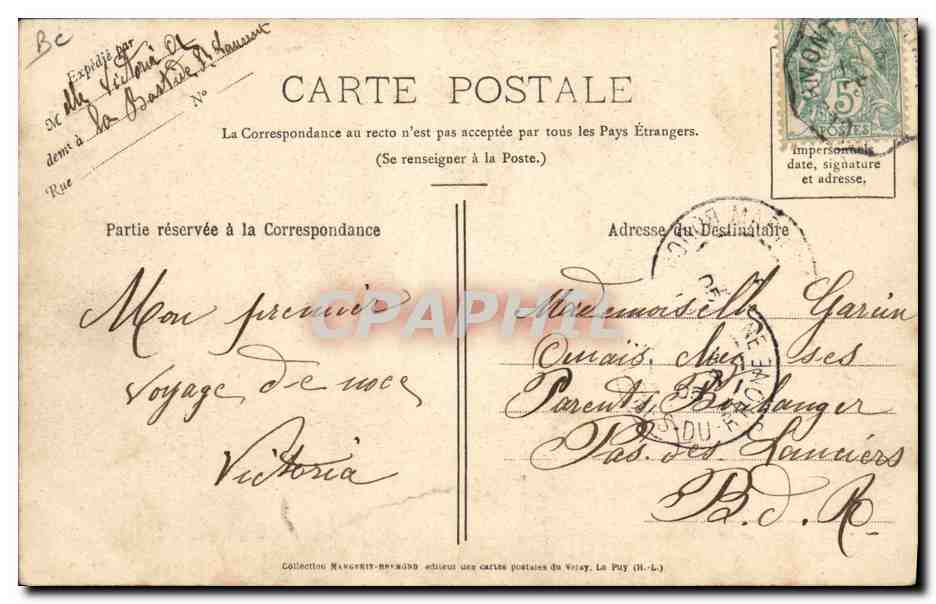 Bc
Expédié par
M Mlle Victoria
demt à la Bastide St Laurent
Rue N°
CARTE POSTALE
La Correspondance au recto n'est pas acceptée par tous les Pays Étrangers.
(Se renseigner à la Poste.)
5
POSTES
impersonnels
date, signature
et adresse,
Partie réservée à la Correspondance
Adresse du Destinataire
Mon premier
voyage de noce
Victoria
Mademoiselle Garcin
chez ses
Parents Boulanger
Pas-des-Lanciers
B.d.R
S-DU-RHONE
CPAPHIL
Collection MARGERIT-BREMOND editeur des cartes postales du Velay, Le Puy (H.-L.)